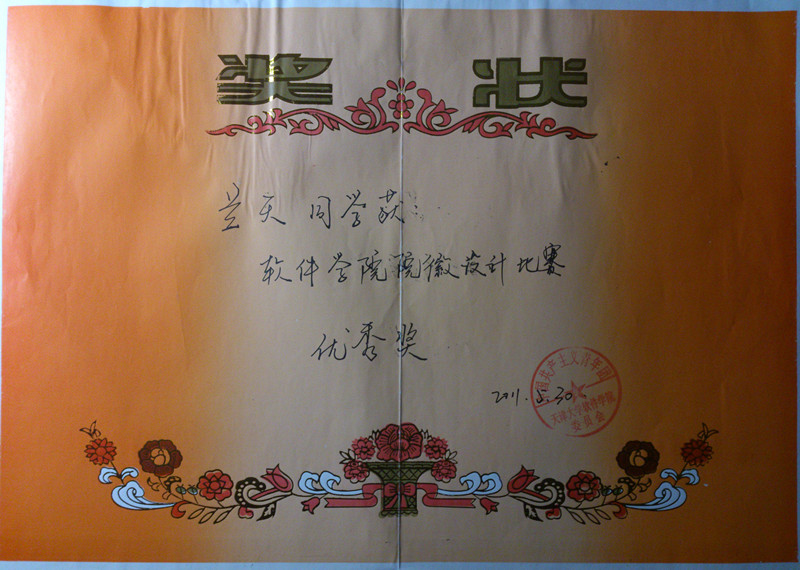 奖状
兰天 同学获:
软件学院院徽设计比赛
优秀奖
2011.5.30.
中国共产主义青年团
天津大学软件学院
委员会